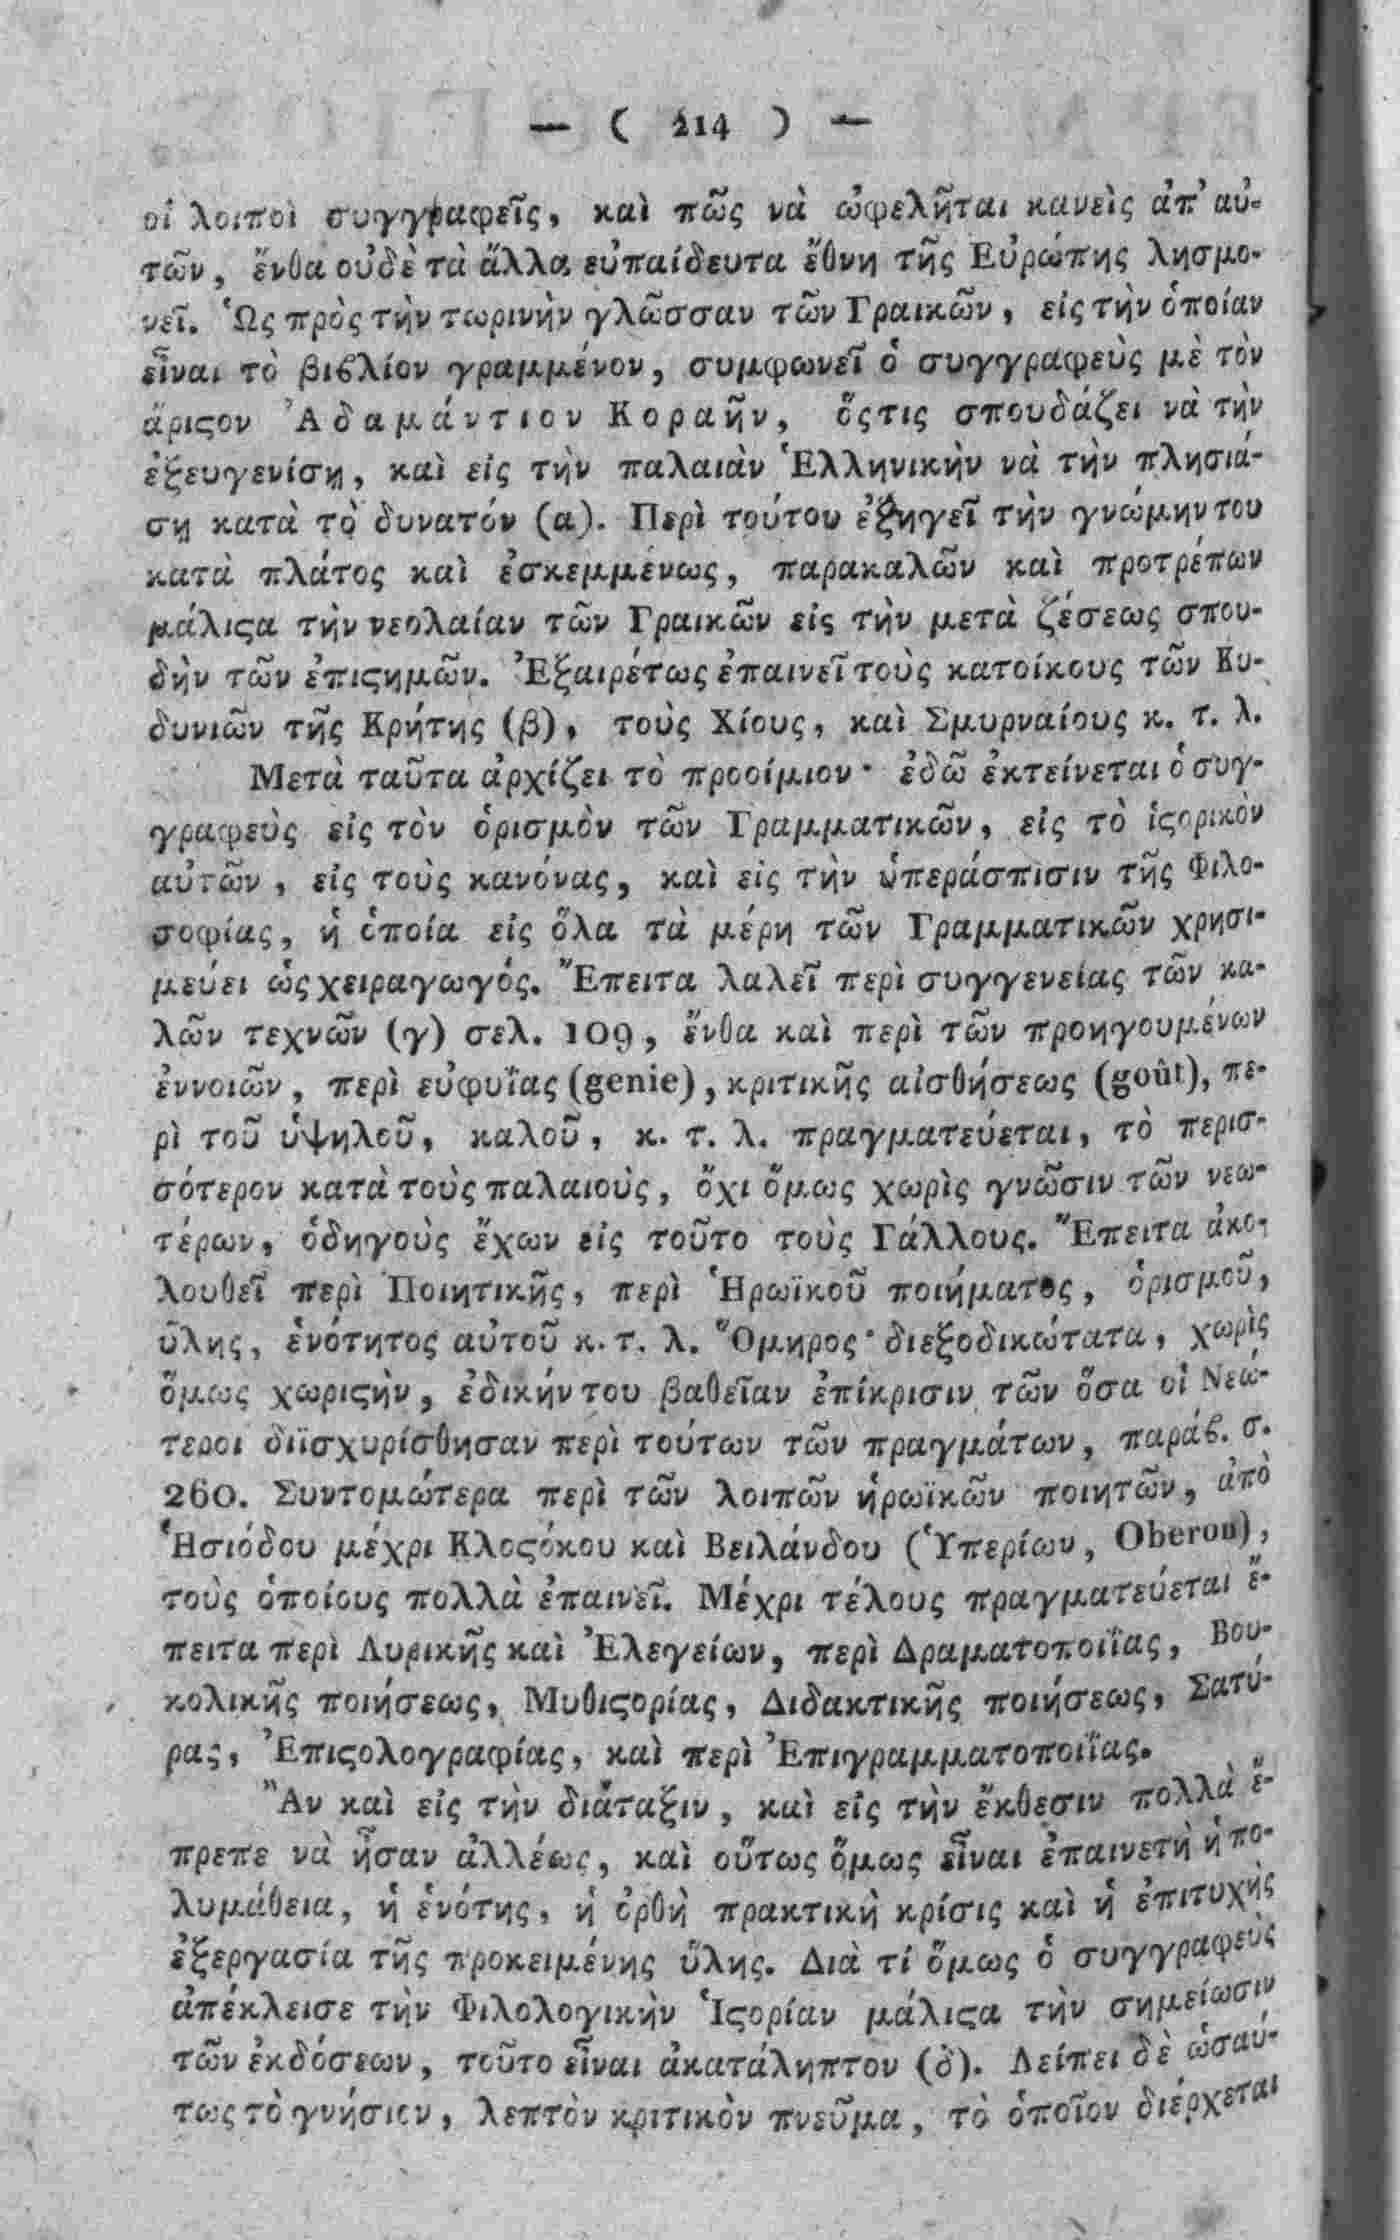 — ( 214 ) —
οἱ λοιποὶ συγγραφεῖς, καὶ πῶς νὰ ὠφελῆται κανεὶς ἀπ' αὐ-
τῶν, ἔνθα οὐδὲ τὰ ἄλλα εὐπαίδευτα ἔθνη τῆς Εὐρώπης λησμο-
νεῖ. Ὡς πρὸς τὴν τωρινὴν γλῶσσαν τῶν Γραικῶν, εἰς τὴν ὁποίαν
εἶναι τὸ βιϐλίον γραμμένον, συμφωνεῖ ὁ συγγραφεὺς μὲ τὸν
ἄριϛον Ἀδαμάντιον Κοραῆν, ὅςτις σπουδάζει νὰ τὴν
ἐξευγενίσῃ, καὶ εἰς τὴν παλαιὰν Ἑλληνικὴν νὰ τὴν πλησιά-
σῃ κατὰ τὸ δυνατόν (α). Περὶ τούτου ἐξηγεῖ τὴν γνώμην του
κατὰ πλάτος καὶ ἐσκεμμένως, παρακαλῶν καὶ προτρέπων
μάλιϛα τὴν νεολαίαν τῶν Γραικῶν εἰς τὴν μετὰ ζέσεως σπου-
δὴν τῶν ἐπιϛημῶν. Ἐξαιρέτως ἐπαινεῖ τοὺς κατοίκους τῶν Κυ-
δυνιῶν τῆς Κρήτης (β), τοὺς Χίους, καὶ Σμυρναίους κ. τ. λ.
Μετὰ ταῦτα ἀρχίζει τὸ προοίμιον· ἐδῶ ἐκτείνεται ὁ συγ-
γραφεὺς εἰς τὸν ὁρισμὸν τῶν Γραμματικῶν, εἰς τὸ ἱϛορικὸν
αὐτῶν, εἰς τοὺς κανόνας, καὶ εἰς τὴν ὑπεράσπισιν τῆς Φιλο-
σοφίας, ἡ ὁποία εἰς ὅλα τὰ μέρη τῶν Γραμματικῶν χρησι-
μεύει ὡς χειραγωγός. Ἔπειτα λαλεῖ περὶ συγγενείας τῶν κα-
λῶν τεχνῶν (γ) σελ. 109, ἔνθα καὶ περὶ τῶν προηγουμένων
ἐννοιῶν, περὶ εὐφυΐας (genie), κριτικῆς αἰσθήσεως (goût), πε-
ρὶ τοῦ ὑψηλοῦ, καλοῦ, κ. τ. λ. πραγματεύεται, τὸ περισ-
σότερον κατὰ τοὺς παλαιοὺς, ὄχι ὅμως χωρὶς γνῶσιν τῶν νεω-
τέρων, ὁδηγοὺς ἔχων εἰς τοῦτο τοὺς Γάλλους. Ἔπειτα ἀκο-
λουθεῖ περὶ Ποιητικῆς, περὶ Ἡρωϊκοῦ ποιήματος, ὁρισμοῦ,
ὕλης, ἑνότητος αὐτοῦ κ. τ. λ. Ὅμηρος· διεξοδικώτατα, χωρὶς
ὅμως χωριϛὴν, ἐδικήν του βαθεῖαν ἐπίκρισιν τῶν ὅσα οἱ Νεώ-
τεροι διϊσχυρίσθησαν περὶ τούτων τῶν πραγμάτων, παράϐ. σ.
260. Συντομώτερα περὶ τῶν λοιπῶν ἡρωϊκῶν ποιητῶν, ἀπὸ
Ἡσιόδου μέχρι Κλοϛόκου καὶ Βειλάνδου (Ὑπερίων, Oberon),
τοὺς ὁποίους πολλὰ ἐπαινεῖ. Μέχρι τέλους πραγματεύεται ἔ-
πειτα περὶ Λυρικῆς καὶ Ἐλεγείων, περὶ Δραματοποιΐας, Βου-
κολικῆς ποιήσεως, Μυθιϛορίας, Διδακτικῆς ποιήσεως, Σατύ-
ρας, Ἐπιϛολογραφίας, καὶ περὶ Ἐπιγραμματοποιΐας.
Ἂν καὶ εἰς τὴν διάταξιν, καὶ εἰς τὴν ἔκθεσιν πολλὰ ἔ-
πρεπε νὰ ἦσαν ἀλλέως, καὶ οὕτως ὅμως εἶναι ἐπαινετὴ ἡ πο-
λυμάθεια, ἡ ἑνότης, ἡ ὀρθὴ πρακτικὴ κρίσις καὶ ἡ ἐπιτυχὴς
ἐξεργασία τῆς προκειμένης ὕλης. Διὰ τί ὅμως ὁ συγγραφεὺς
ἀπέκλεισε τὴν Φιλολογικὴν Ἱϛορίαν μάλιϛα τὴν σημείωσιν
τῶν ἐκδόσεων, τοῦτο εἶναι ἀκατάληπτον (δ). Λείπει δὲ ὡσαύ-
τως τὸ γνήσιον, λεπτὸν κριτικὸν πνεῦμα, τὸ ὁποῖον διέρχεται